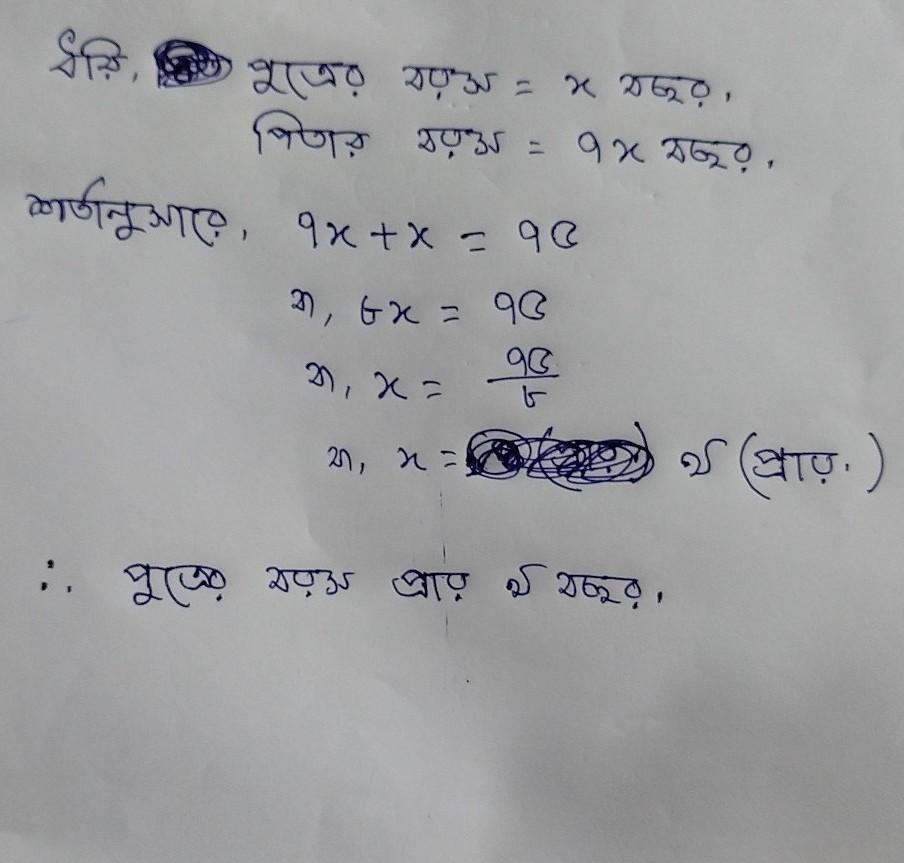 ধরি, পুত্রের বয়স = x বছর,
পিতার বয়স = ৭x বছর,
শর্তানুসারে, ৭x + x = ৭৫
বা, ৮x = ৭৫
বা, x = ৭৫/৮
বা, x = ৯ (প্রায়.)
∴ পুত্রের বয়স প্রায় ৯ বছর,